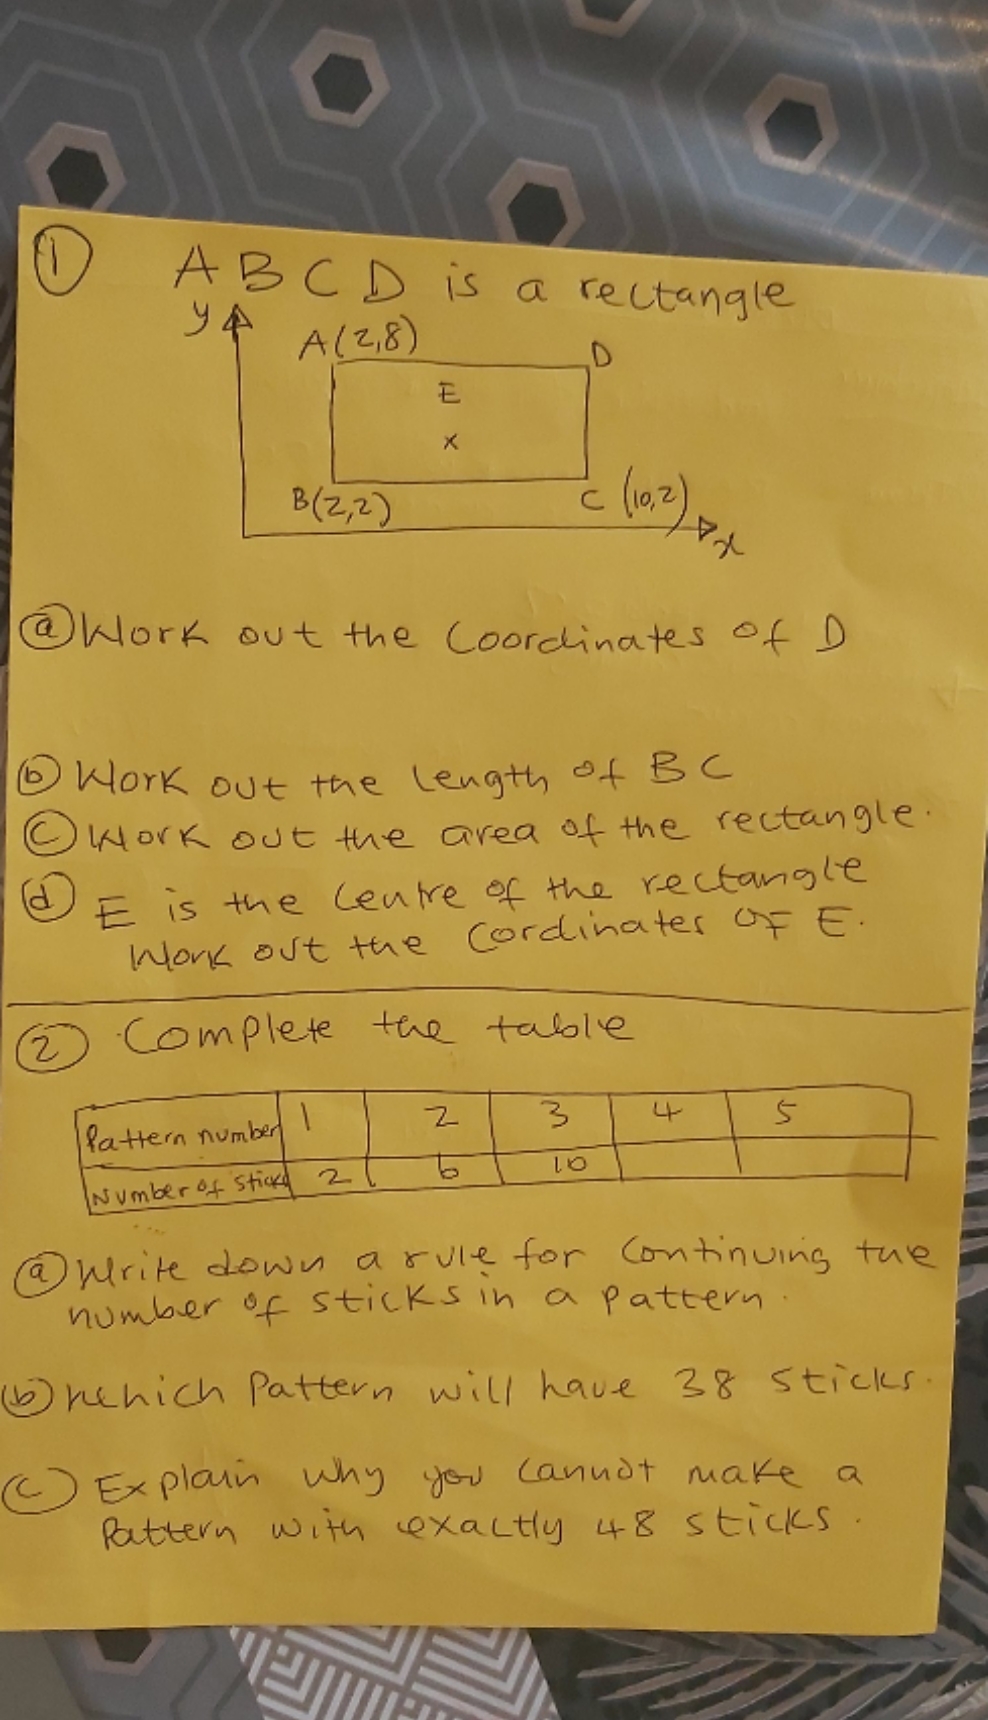 1 A B C D is a rectangle
y
A(2,8)
D
E
x
B(2,2)
C (10,2)
x
a Work out the Coordinates of D
b Work out the length of BC
c Work out the area of the rectangle.
d E is the Centre of the rectangle
Work out the Cordinates OF E.
2 Complete the table
Pattern number 1 2 3 4 5
Number of sticks 2 6 10
a Write down a rule for Continuing the
number of sticks in a pattern.
b Which Pattern will have 38 Sticks.
c Explain why you Cannot make a
Pattern with exactly 48 sticks.